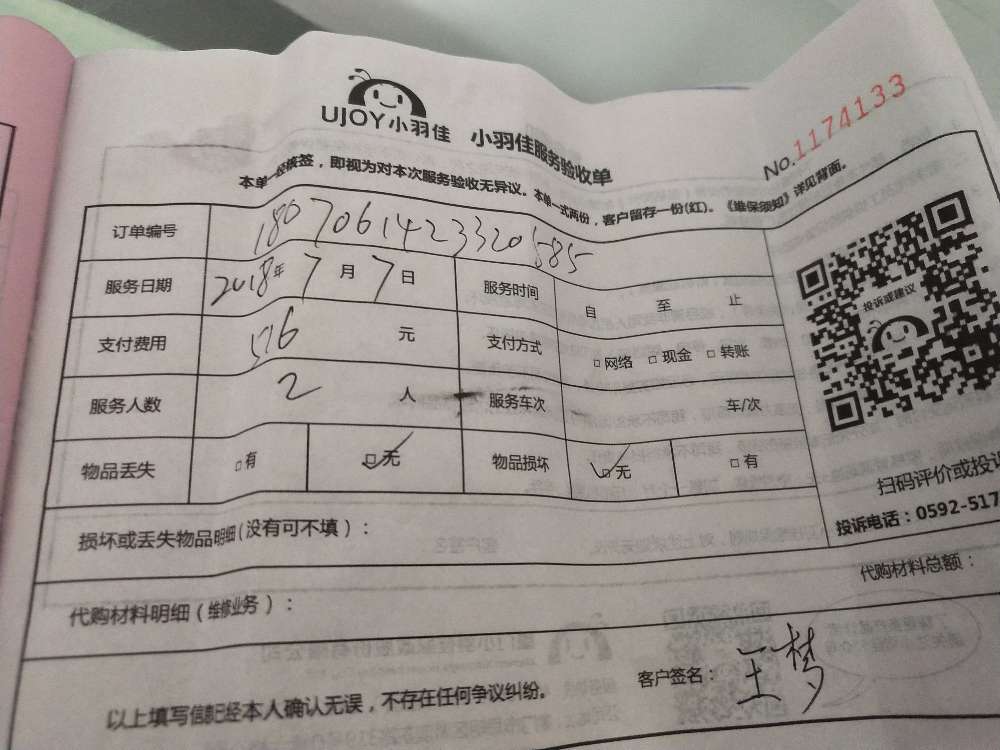 UJOY小羽佳 小羽佳服务验收单
No.1174133
本单一经核签，即视为对本次服务验收无异议。本单一式两份，客户留存一份(红)。《维保须知》详见背面。
订单编号 1807061423320585
服务日期 2018年7月7日 服务时间 自 至 止
支付费用 576 元 支付方式 □网络 □现金 □转账
服务人数 2 人 服务车次 车/次
物品丢失 □有 ☑无 物品损坏 ☑无 □有
投诉或建议
扫码评价或投诉
投诉电话：0592-517
损坏或丢失物品明细(没有可不填)：
代购材料明细(维修业务)： 代购材料总额：
以上填写信息已经本人确认无误，不存在任何争议纠纷。 客户签名：王梦